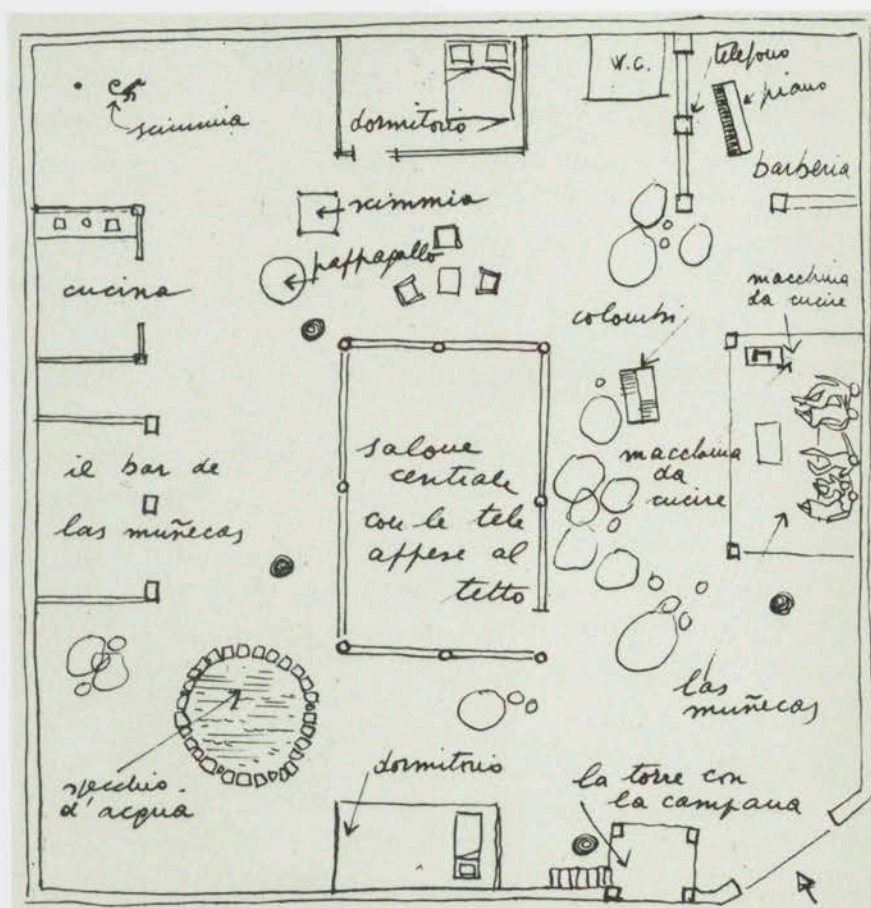 W.C.
telefono
piano
scimmia
dormitorio
barberia
scimmia
pappagallo
cucina
macchina
da cucire
colombi
il bar de
las muñecas
salone
centrale
con le tele
appese al
tetto
macchina
da
cucire
las
muñecas
specchio
d'acqua
dormitorio
la torre con
la campana